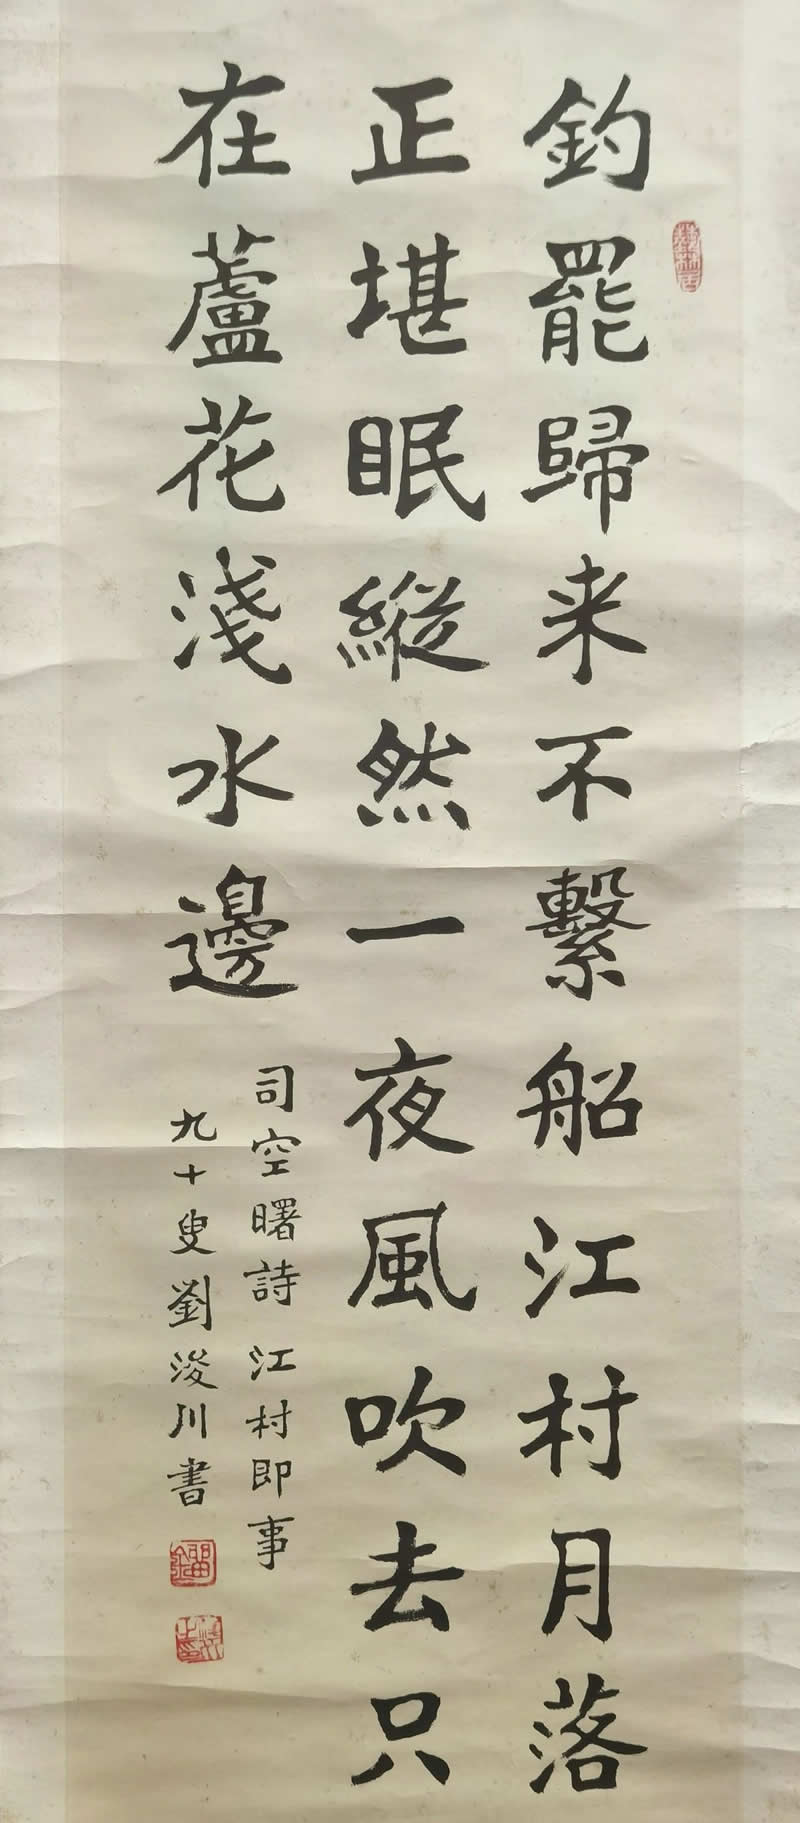 釣罷歸来不繫船江村月落
正堪眠縱然一夜風吹去只
在蘆花淺水邊
司空曙詩江村即事
九十叟劉浚川書